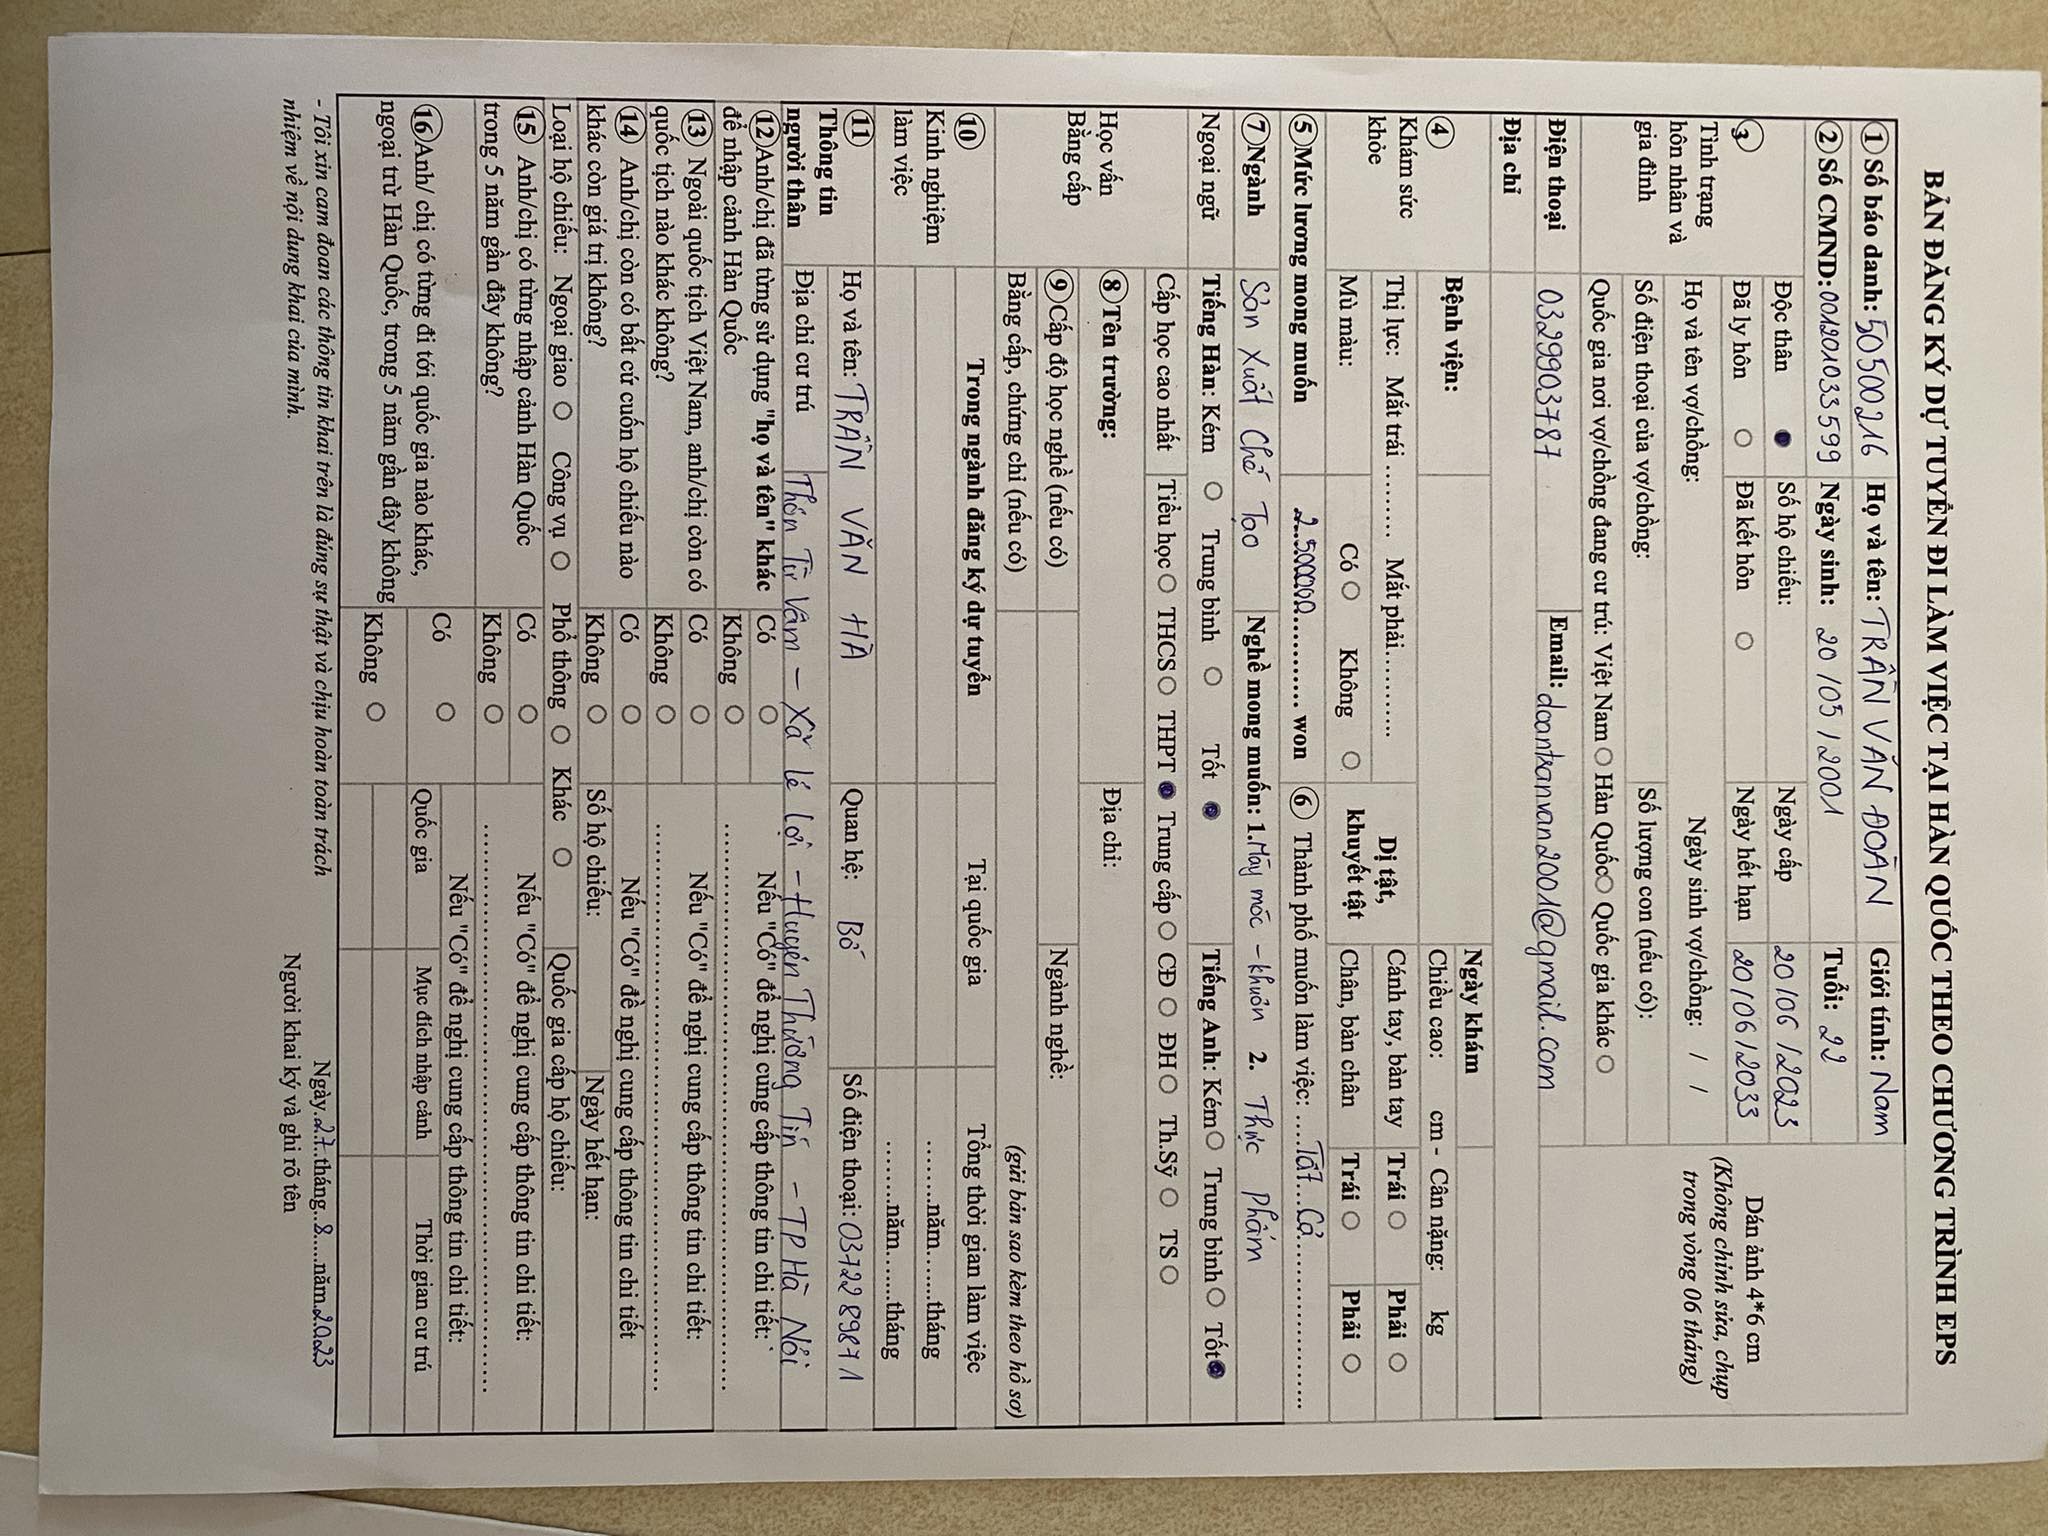 BẢN ĐĂNG KÝ DỰ TUYỂN ĐI LÀM VIỆC TẠI HÀN QUỐC THEO CHƯƠNG TRÌNH EPS
① Số báo danh: 50500216 Họ và tên: TRẦN VĂN ĐOÀN Giới tính: Nam
② Số CMND: 001201033599 Ngày sinh: 20/05/2001 Tuổi: 22
Dán ảnh 4*6 cm
(Không chỉnh sửa, chụp
trong vòng 06 tháng)
③
Tình trạng
hôn nhân và
gia đình
Độc thân ● Số hộ chiếu: Ngày cấp 20/06/2023
Đã ly hôn ○ Đã kết hôn ○ Ngày hết hạn 20/06/2033
Họ và tên vợ/chồng: Ngày sinh vợ/chồng: / /
Số điện thoại của vợ/chồng: Số lượng con (nếu có):
Quốc gia nơi vợ/chồng đang cư trú: Việt Nam ○ Hàn Quốc ○ Quốc gia khác ○
Điện thoại 0329903787 Email: doantranvan2001@gmail.com
Địa chỉ
④
Khám sức
khỏe
Bệnh viện: Ngày khám
Chiều cao: cm - Cân nặng: kg
Thị lực: Mắt trái ......... Mắt phải...........
Dị tật,
khuyết tật
Cánh tay, bàn tay Trái ○ Phải ○
Mù màu: Có ○ Không ○
Chân, bàn chân Trái ○ Phải ○
⑤ Mức lương mong muốn 2.500000............ won ⑥ Thành phố muốn làm việc: ....Tất...Cả..................
⑦ Ngành Sản Xuất Chế Tạo Nghề mong muốn: 1. Máy móc - khuôn 2. Thực phẩm
Ngoại ngữ Tiếng Hàn: Kém ○ Trung bình ○ Tốt ● Tiếng Anh: Kém ○ Trung bình ○ Tốt ●
Học vấn
Bằng cấp
Cấp học cao nhất Tiểu học ○ THCS ○ THPT ● Trung cấp ○ CĐ ○ ĐH ○ Th.Sỹ ○ TS ○
⑧ Tên trường: Địa chỉ:
⑨ Cấp độ học nghề (nếu có) Ngành nghề:
Bằng cấp, chứng chỉ (nếu có) (gửi bản sao kèm theo hồ sơ)
⑩
Kinh nghiệm
làm việc
Trong ngành đăng ký dự tuyển Tại quốc gia Tổng thời gian làm việc
........năm.......tháng
........năm.......tháng
⑪
Thông tin
người thân
Họ và tên: TRẦN VĂN HÀ Quan hệ: Bố Số điện thoại: 0372289871
Địa chỉ cư trú Thôn Từ Vân - Xã lê lợi - Huyện Thường Tín - TP Hà Nội
⑫ Anh/chị đã từng sử dụng "họ và tên" khác
để nhập cảnh Hàn Quốc
Có ○
Không ○
Nếu "Có" đề nghị cung cấp thông tin chi tiết:
..................................................................
⑬ Ngoài quốc tịch Việt Nam, anh/chị còn có
quốc tịch nào khác không?
Có ○
Không ○
Nếu "Có" đề nghị cung cấp thông tin chi tiết:
..................................................................
⑭ Anh/chị còn có bất cứ cuốn hộ chiếu nào
khác còn giá trị không?
Có ○
Không ○
Nếu "Có" đề nghị cung cấp thông tin chi tiết
Số hộ chiếu: Ngày hết hạn:
Loại hộ chiếu: Ngoại giao ○ Công vụ ○ Phổ thông ○ Khác ○ Quốc gia cấp hộ chiếu:
⑮ Anh/chị có từng nhập cảnh Hàn Quốc
trong 5 năm gần đây không?
Có ○
Không ○
Nếu "Có" đề nghị cung cấp thông tin chi tiết:
..................................................................
⑯ Anh/ chị có từng đi tới quốc gia nào khác,
ngoại trừ Hàn Quốc, trong 5 năm gần đây không
Có ○
Không ○
Nếu "Có" đề nghị cung cấp thông tin chi tiết:
Quốc gia Mục đích nhập cảnh Thời gian cư trú
- Tôi xin cam đoan các thông tin khai trên là đúng sự thật và chịu hoàn toàn trách
nhiệm về nội dung khai của mình.
Ngày.27..tháng..8.....năm.2023
Người khai ký và ghi rõ tên